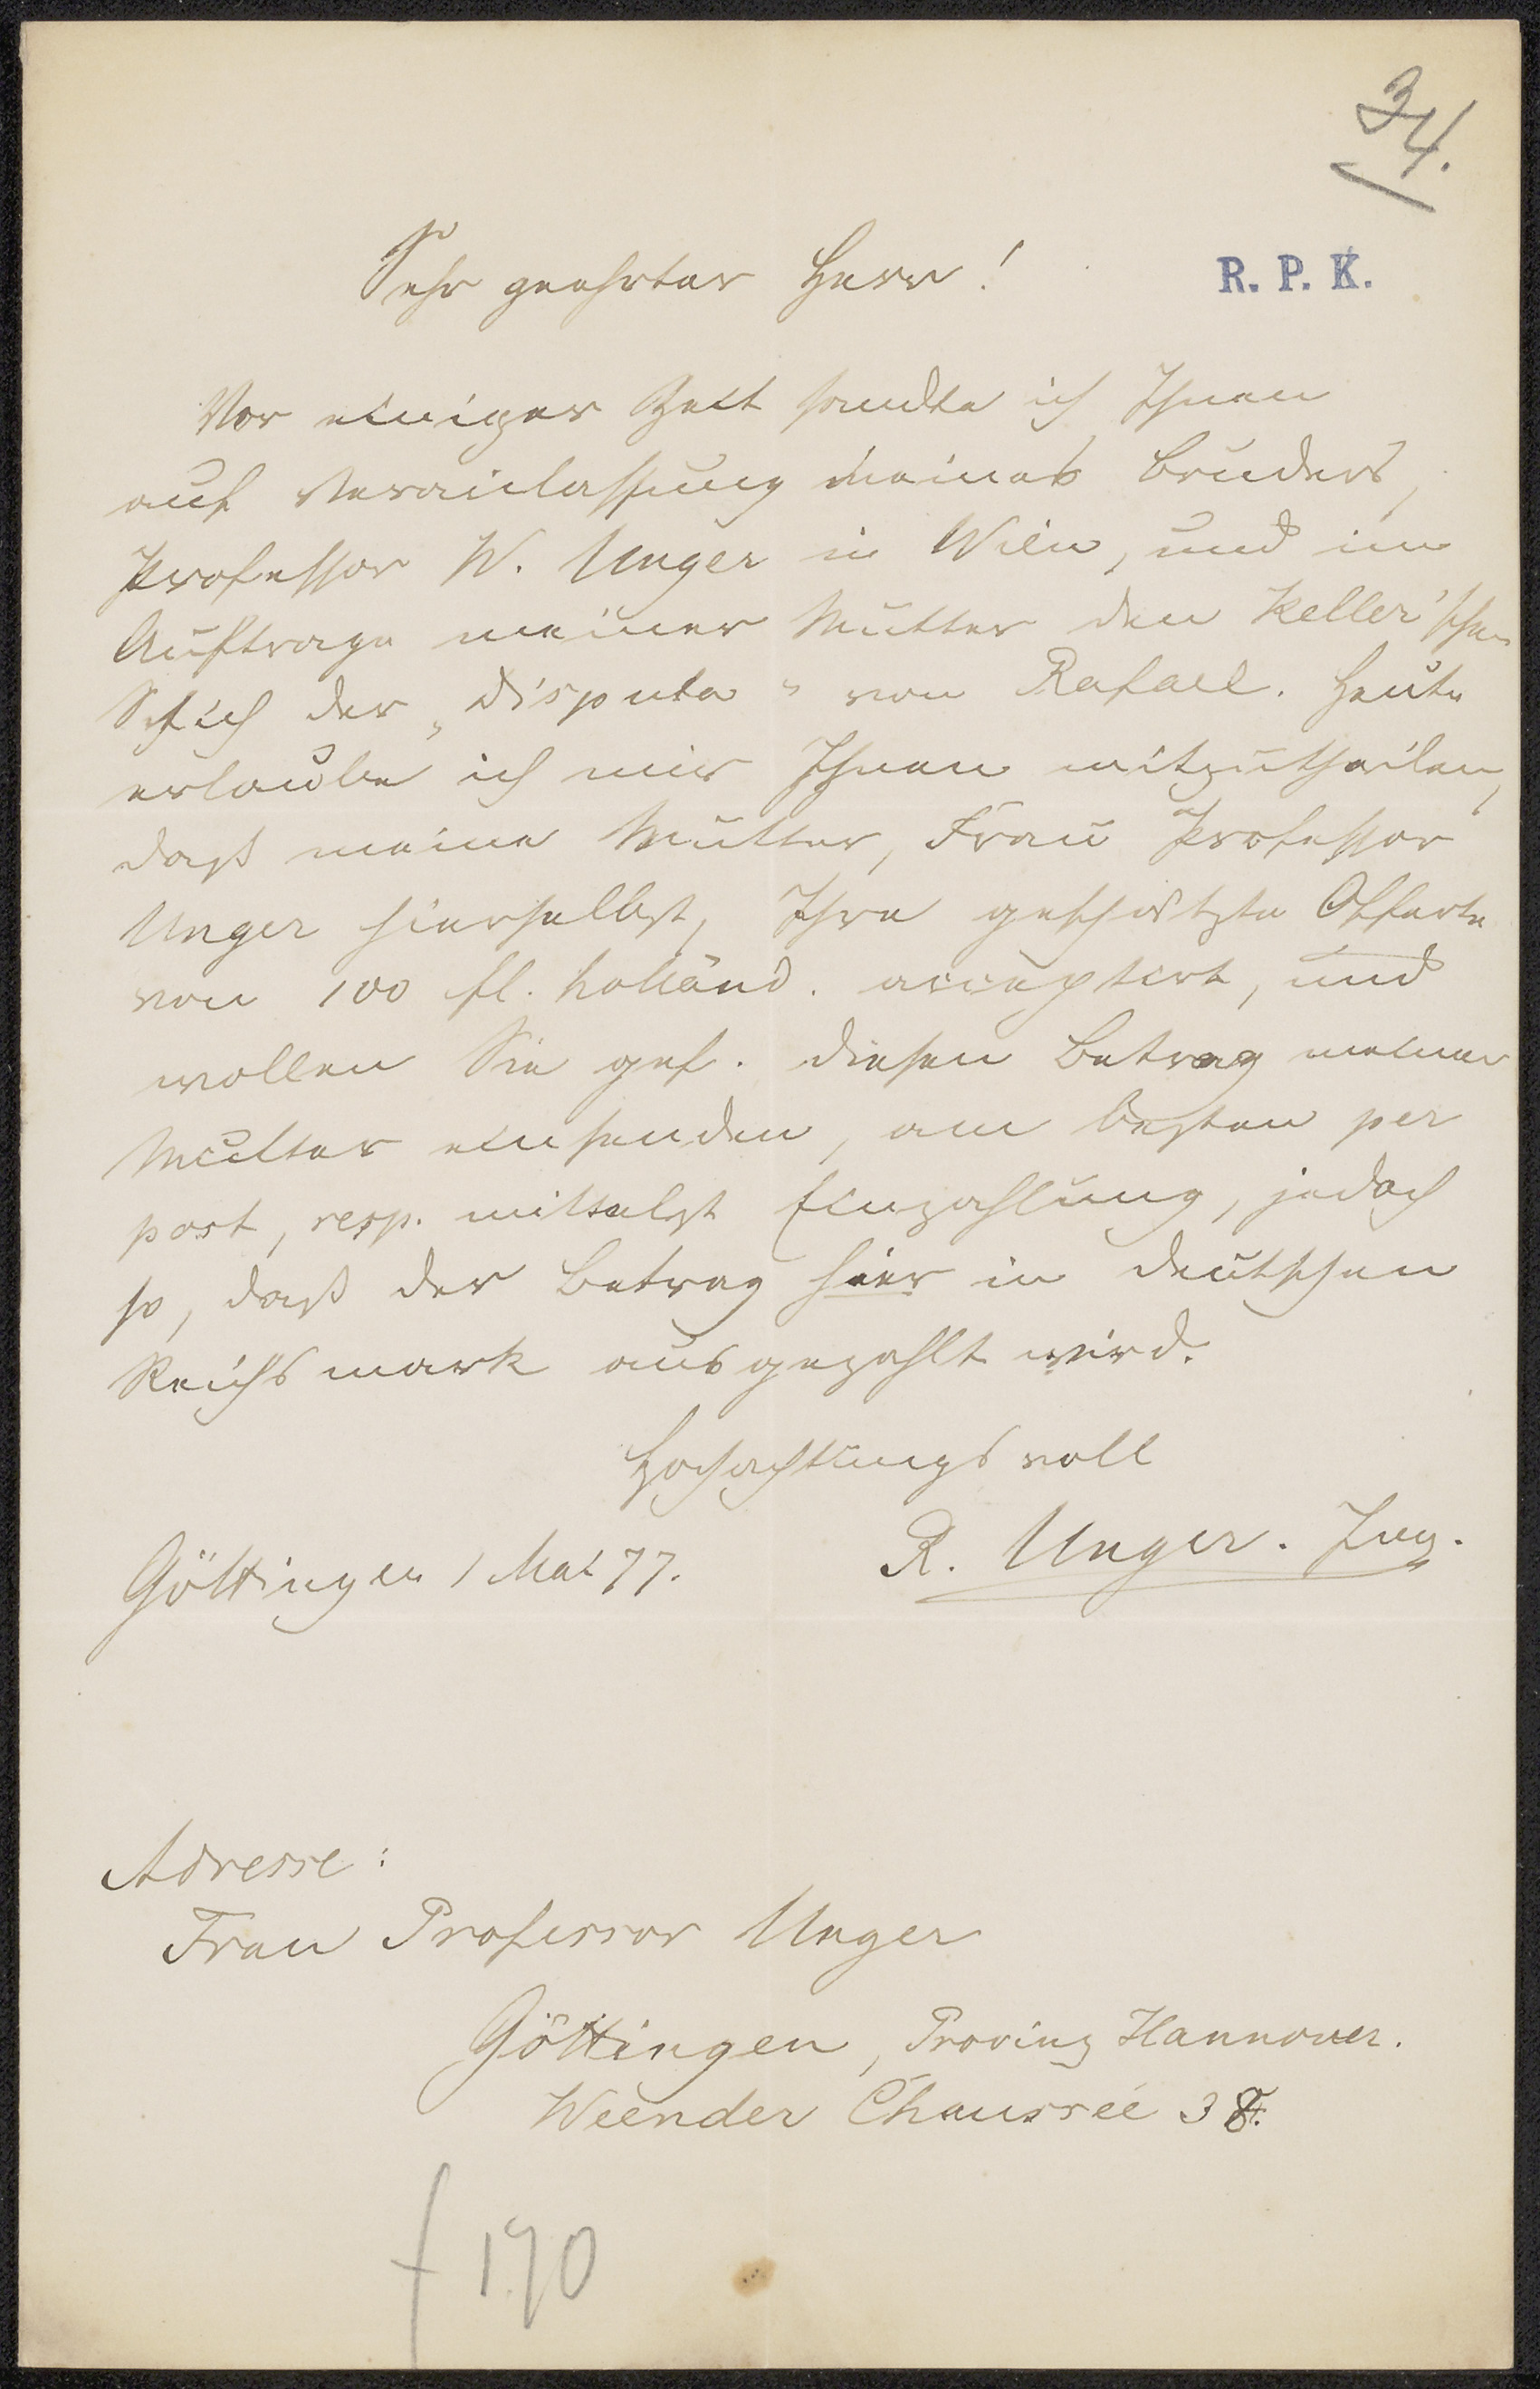 34.
Sehr geehrter Herr!
R. P. K.
Vor einiger Zeit sandte ich Ihnen
auf Veranlassung meines Bruders,
Professor W. Unger in Wien, und im
Auftrage meiner Mutter den Keller'schen
Stich der „Disputa" von Rafael. Heute
erlaube ich mir Ihnen mitzutheilen,
daß meine Mutter, Frau Professor
Unger hierselbst, Ihre geschätzte Offerte
von 100 fl. holländ. acceptirt, und
wollen Sie gef. diesen Betrag meiner
Mutter einsenden, am besten per
post, resp. mittelst Einzahlung, jedoch
so, daß der Betrag hier in deutschen
Reichsmark ausgezahlt wird.
Hochachtungsvoll
R. Unger. Ing.
Göttingen 1 Mai 77.
Adresse:
Frau Professor Unger
Göttingen, Provinz Hannover.
Weender Chaussée 38.
f 170